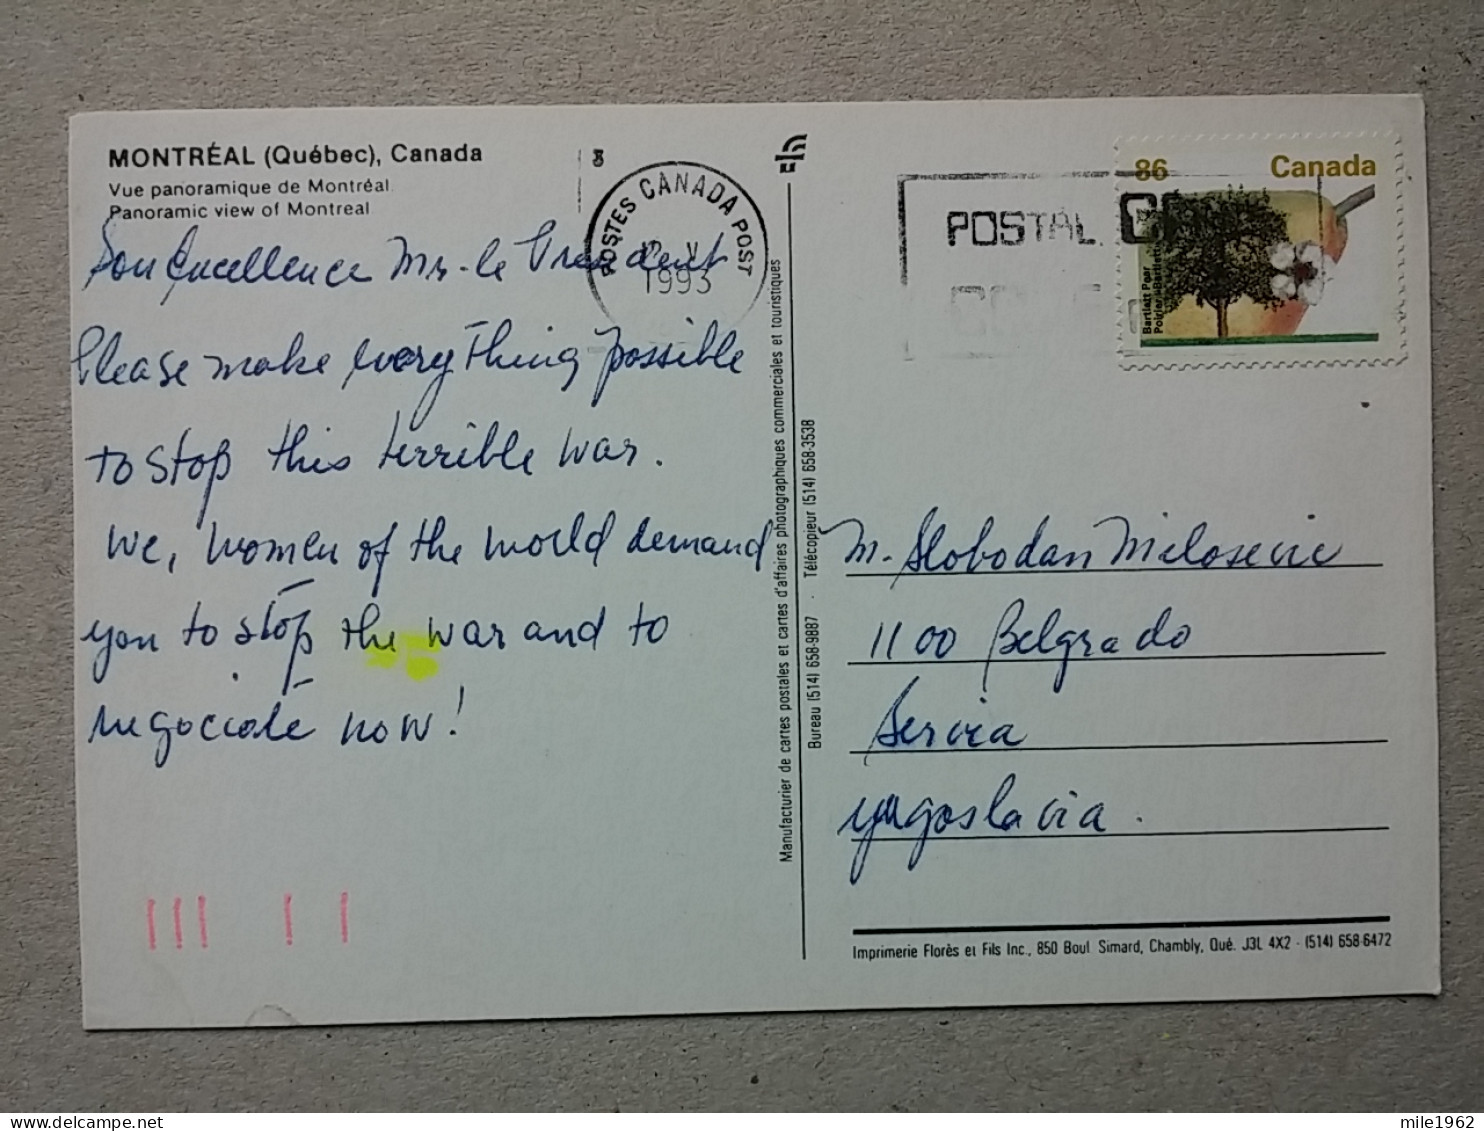 MONTRÉAL (Québec), Canada
Vue panoramique de Montréal
Panoramic view of Montreal
Son Excellence Mr. le President
Please make everything possible
to stop this terrible war.
We, women of the world demand
you to stop the war and to
negociate now!
POSTES CANADA POST
V
1993
POSTAL
86
Canada
Bartlett Pear
Poirier Bartlett
Manufacturier de cartes postales et cartes d'affaires photographiques commerciales et touristiques
Bureau (514) 658-9887 · Télécopieur (514) 658-3538
M. Slobodan Milosevic
1100 Belgrado
Servia
Yugoslavia.
Imprimerie Florès et Fils Inc., 850 Boul. Simard, Chambly, Qué. J3L 4X2 · (514) 658-6472
mile1962